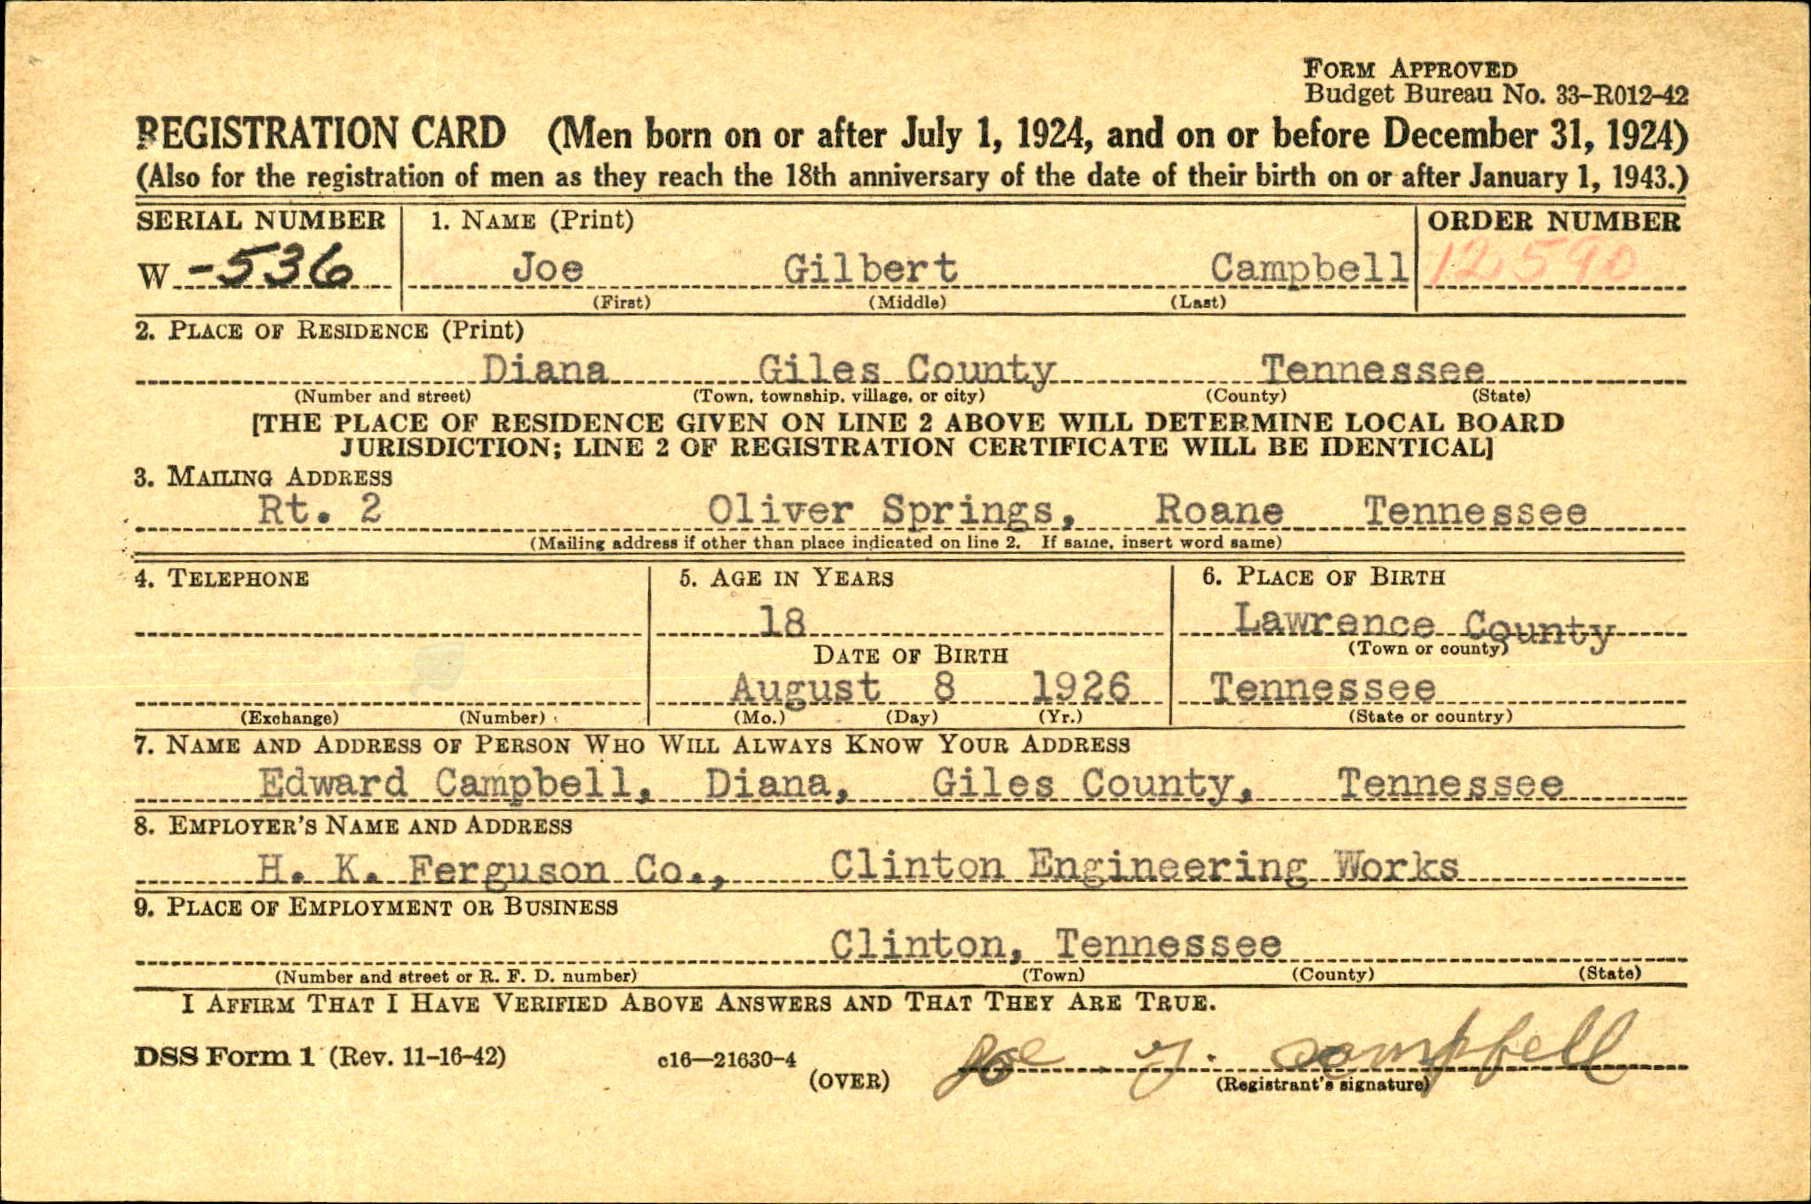 FORM APPROVED
Budget Bureau No. 33-R012-42
REGISTRATION CARD (Men born on or after July 1, 1924, and on or before December 31, 1924)
(Also for the registration of men as they reach the 18th anniversary of the date of their birth on or after January 1, 1943.)
SERIAL NUMBER 1. NAME (Print) ORDER NUMBER
W -536 Joe Gilbert Campbell 12590
(First) (Middle) (Last)
2. PLACE OF RESIDENCE (Print)
Diana Giles County Tennessee
(Number and street) (Town, township, village, or city) (County) (State)
[THE PLACE OF RESIDENCE GIVEN ON LINE 2 ABOVE WILL DETERMINE LOCAL BOARD
JURISDICTION; LINE 2 OF REGISTRATION CERTIFICATE WILL BE IDENTICAL]
3. MAILING ADDRESS
Rt. 2 Oliver Springs, Roane Tennessee
(Mailing address if other than place indicated on line 2. If same, insert word same)
4. TELEPHONE 5. AGE IN YEARS 6. PLACE OF BIRTH
18 Lawrence County
DATE OF BIRTH (Town or county)
August 8 1926 Tennessee
(Exchange) (Number) (Mo.) (Day) (Yr.) (State or country)
7. NAME AND ADDRESS OF PERSON WHO WILL ALWAYS KNOW YOUR ADDRESS
Edward Campbell, Diana, Giles County, Tennessee
8. EMPLOYER'S NAME AND ADDRESS
H. K. Ferguson Co., Clinton Engineering Works
9. PLACE OF EMPLOYMENT OR BUSINESS
Clinton, Tennessee
(Number and street or R. F. D. number) (Town) (County) (State)
I AFFIRM THAT I HAVE VERIFIED ABOVE ANSWERS AND THAT THEY ARE TRUE.
DSS Form 1 (Rev. 11-16-42) c16—21630-4 Joe G. Campbell
(OVER) (Registrant's signature)